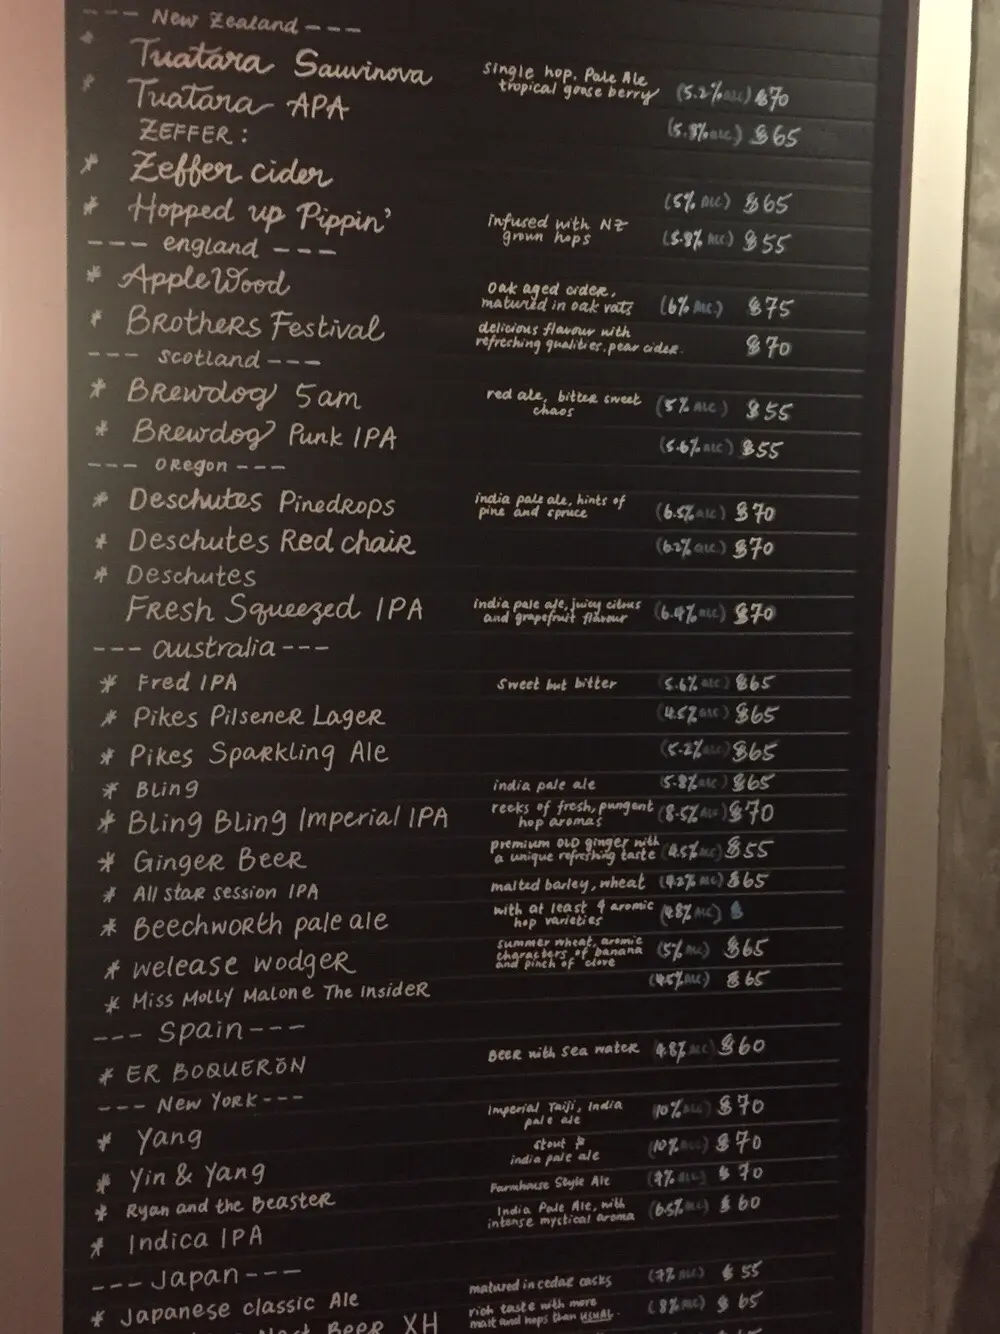 --- New Zealand ---
* Tuatara Sauvinova single hop. Pale Ale tropical gooseberry (5.2% alc) $70
* Tuatara APA (5.8% alc) $65
ZEFFER:
* Zeffer cider (5% Alc) $65
* Hopped up Pippin' infused with NZ grown hops (5.8% Alc) $55
--- england ---
* AppleWood Oak aged cider, matured in oak vats (6% Alc.) $75
* Brothers Festival delicious flavour with refreshing qualities, pear cider. $70
--- scotland ---
* Brewdog 5am red ale, bitter sweet chaos (5% Alc) $55
* Brewdog Punk IPA (5.6% Alc) $55
--- Oregon ---
* Deschutes Pinedrops india pale ale, hints of pine and spruce (6.5% alc) $70
* Deschutes Red chair (6.2% alc) $70
* Deschutes
Fresh Squeezed IPA india pale ale, juicy citrus and grapefruit flavour (6.4% alc) $70
--- australia ---
* Fred IPA Sweet but bitter (5.6% alc) $65
* Pikes Pilsener Lager (4.5% alc) $65
* Pikes Sparkling Ale (5.2% alc) $65
* Bling india pale ale (5.8% alc) $65
* Bling Bling Imperial IPA reeks of fresh, pungent hop aromas (8.5% Alc) $70
* Ginger Beer premium OLD ginger with a unique refreshing taste (4.5% alc) $55
* All star session IPA malted barley, wheat (4.2% alc) $65
* Beechworth pale ale with at least 4 aromic hop varieties (4.8% Alc) $
* welease wodger summer wheat, aromic characters of banana and pinch of clove (5% Alc) $65
* Miss Molly Malone The Insider (4.5% Alc) $65
--- Spain ---
* ER BOQUERŎN BEER with sea water 4.8% Alc) $60
--- New York ---
* Yang Imperial Taiji, India pale ale (10% Alc) $70
* Yin & Yang stout & india pale ale (10% Alc) $70
* Ryan and the Beaster Farmhouse Style Ale (7% Alc) $70
* Indica IPA India Pale Ale, with intense mystical aroma (6.5% Alc) $60
--- Japan ---
* Japanese classic Ale matured in cedar casks (7% Alc) $55
Nest Beer XH rich taste with more malt and hops than usual. (8% Alc) $65